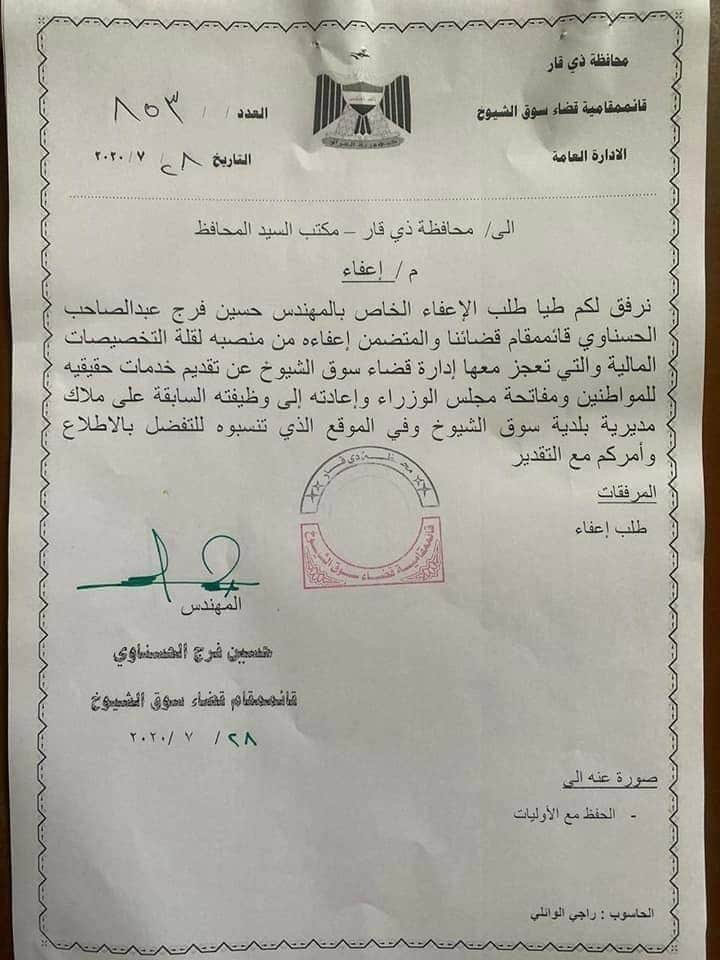 محافظة ذي قار
قائممقامية قضاء سوق الشيوخ
الادارة العامة
جمهورية العراق
العدد / / ٨٥٣
التاريخ ٢٨ / ٧ / ٢٠٢٠
الى/ محافظة ذي قار – مكتب السيد المحافظ
م / إعفاء
نرفق لكم طيا طلب الإعفاء الخاص بالمهندس حسين فرج عبدالصاحب
الحسناوي قائممقام قضائنا والمتضمن إعفاءه من منصبه لقلة التخصيصات
المالية والتي تعجز معها إدارة قضاء سوق الشيوخ عن تقديم خدمات حقيقيه
للمواطنين ومفاتحة مجلس الوزراء وإعادته إلى وظيفته السابقة على ملاك
مديرية بلدية سوق الشيوخ وفي الموقع الذي تنسبوه للتفضل بالاطلاع
وأمركم مع التقدير
محافظة ذي قار
قائممقامية قضاء سوق الشيوخ
المرفقات
طلب إعفاء
المهندس
حسين فرج الحسناوي
قائممقام قضاء سوق الشيوخ
٢٨ / ٧ /٢٠٢٠
صورة عنه الى
- الحفظ مع الأوليات
الحاسوب : راجي الوائلي